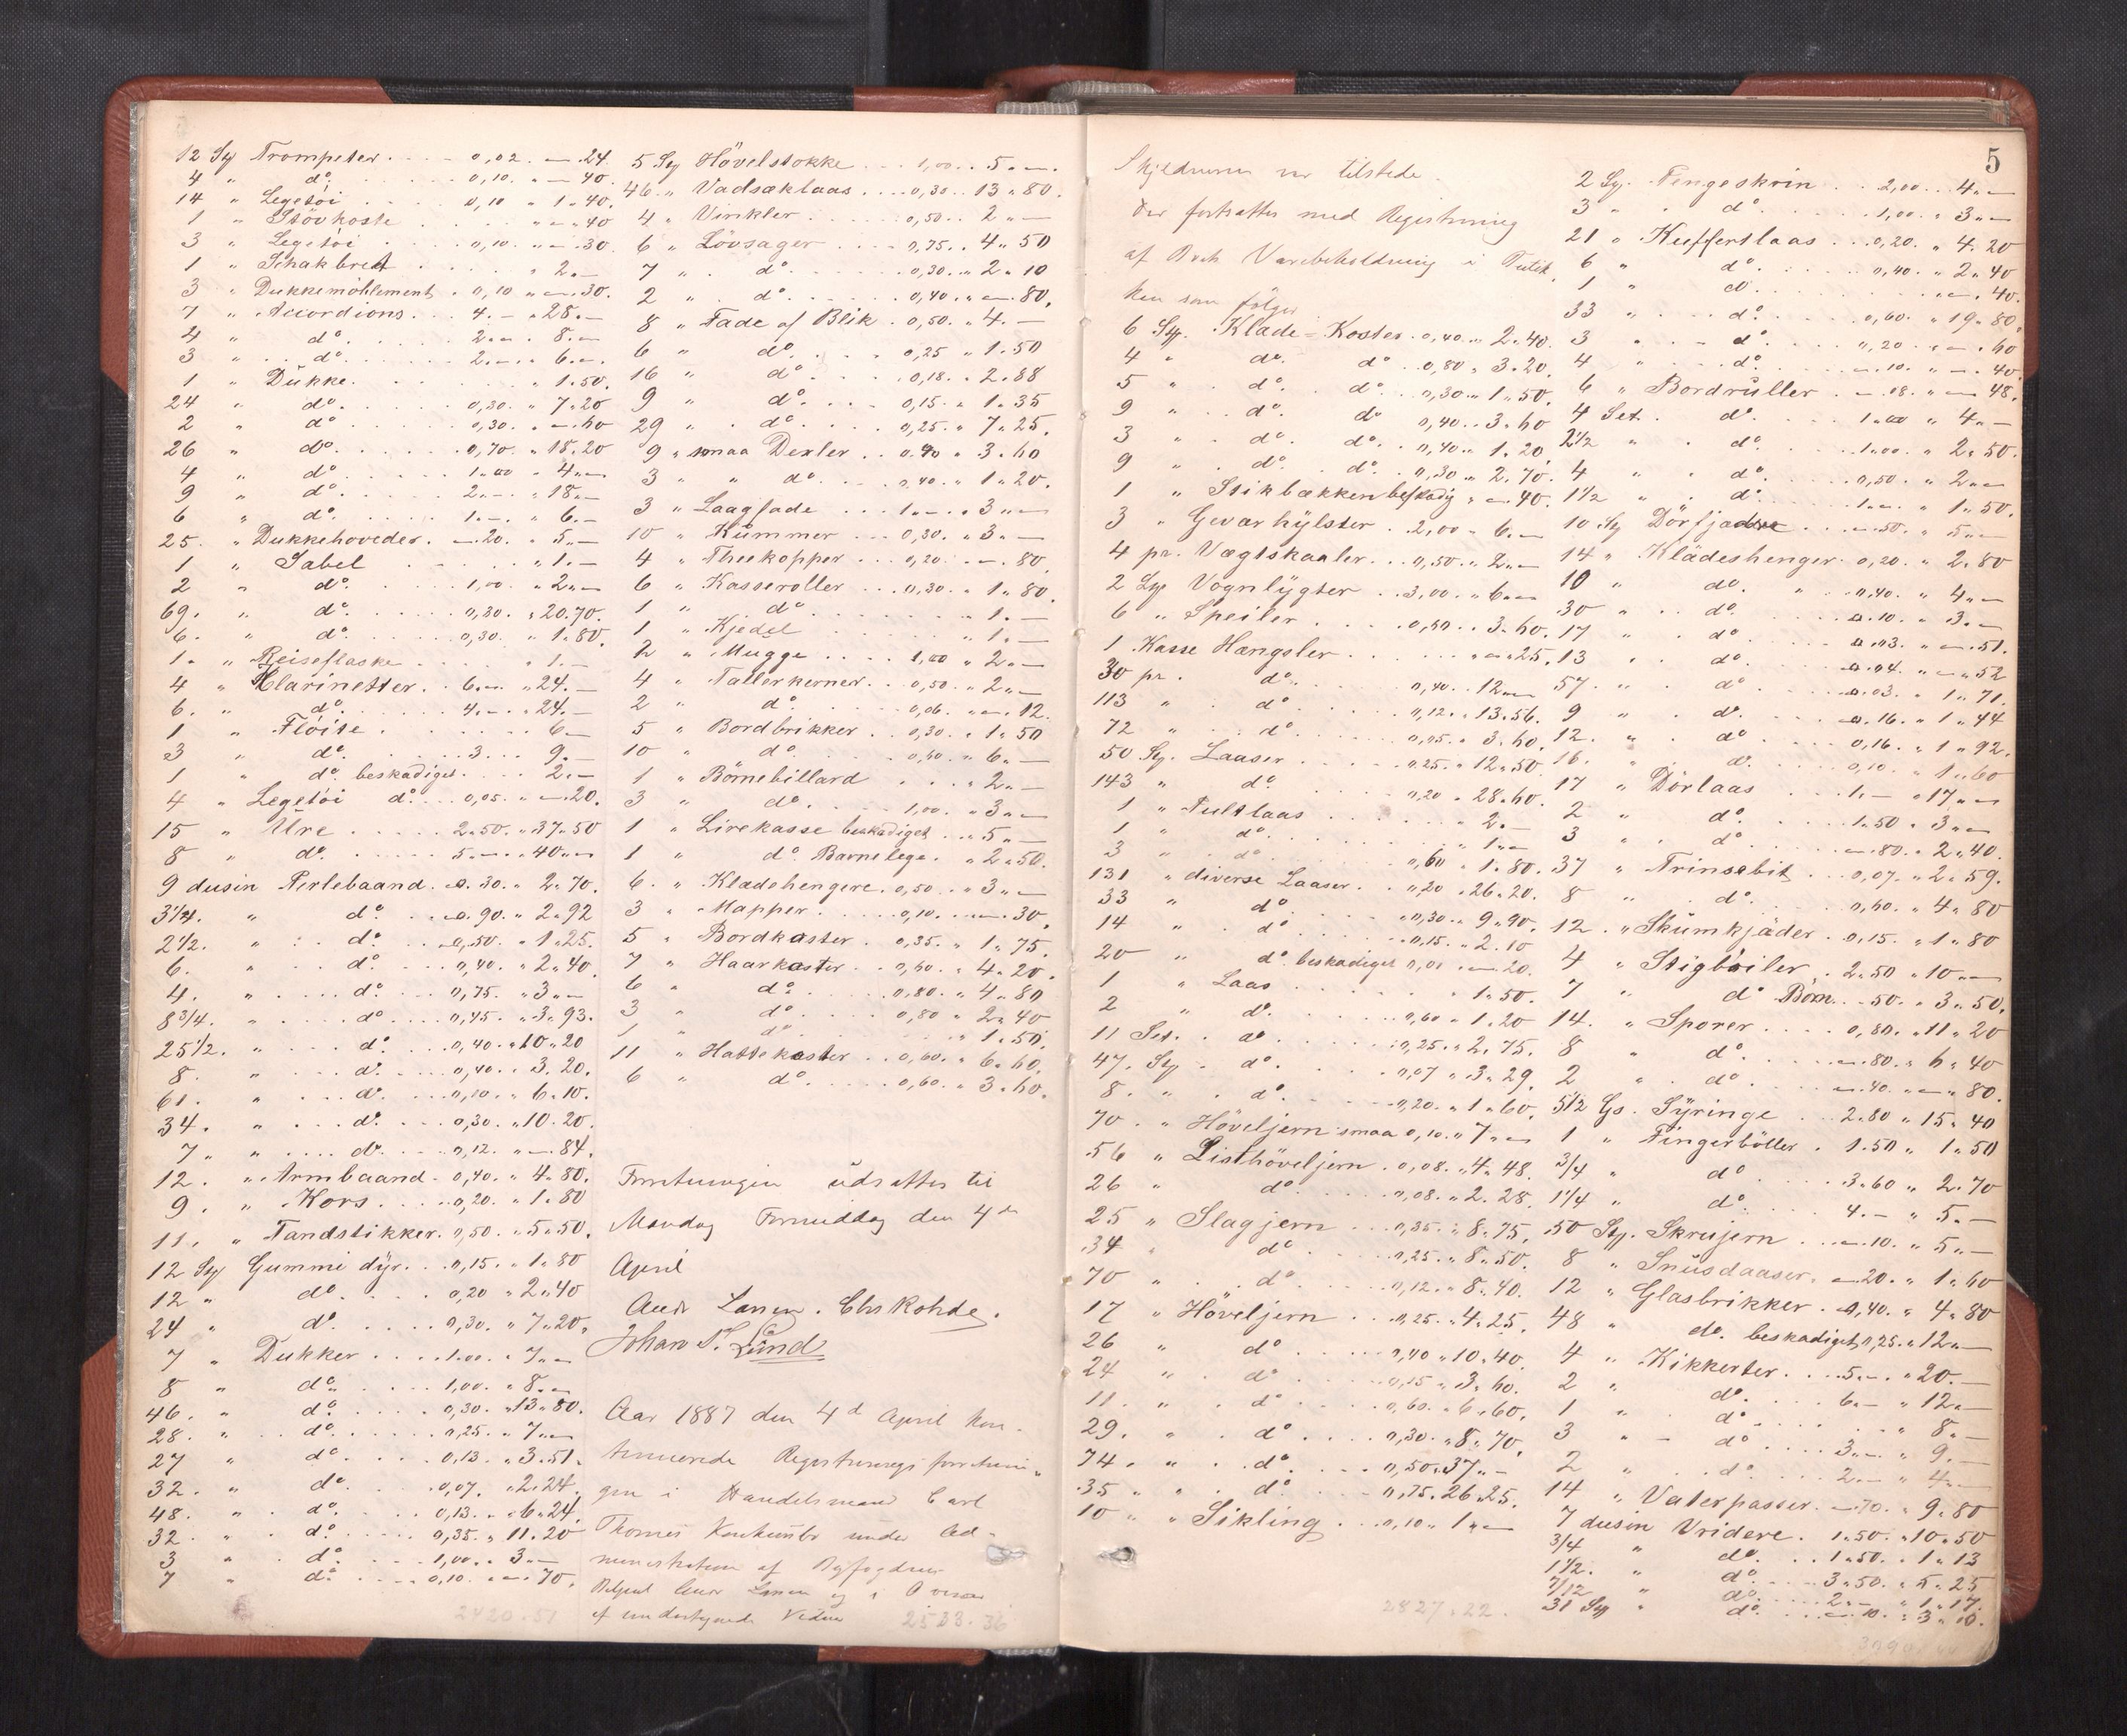 12 Stÿ Trompeter . . . . 0,02. „ — 24.
4 „ do. . . . . 0,10. „ — 40.
14 „ Legetöi . . . . 0,10 „ 1 „ 40.
1 „ Stövkoste . . . . „ — 40
3 „ Legetöi . . . . 0,10. „ — 30.
1 „ Schakbret . . . . „ 2 „ —
3 „ Dukkemöblement . 0,10 „ — 30.
7 „ Accordions . . . 4. — „ 28 „ —
4 „ do. . . . . 2 „ — „ 8 „ —
3 „ do. . . . . 2 „ — „ 6 „ —
1 „ Dukke . . . . „ 1 „ 50.
24 „ do. . . . . 0,30. „ 7 „ 20
2 „ do. . . . . 0,30. „ — 60
26 „ do. . . . . 0,70. „ 18 „ 20
4 „ do. . . . . 1 „ 00 „ 4 „ —
9 „ do. . . . . 2 „ — „ 18 „ —
6 „ do. . . . . 1 „ — „ 6 „ —
25. „ Dukkehoveder . — 20. „ 5 „ —
1 „ Sabel . . . . „ 1 „ —
2 „ do. . . . . 1,00 „ 2 „ —
69. „ do. . . . . 0,30. „ 20.70.
6. „ do. . . . . 0,30. „ 1 „ 80.
1. „ Reiseflaske . . . . „ 1. —
4 „ Clarinetter . . 6 „ — „ 24. —
6. „ do. . . . . 4 „ — „ 24. —
1 „ Flöite . . . . 6 —
3 „ do. . . . . 3 . . . 9 „ —
1 „ do. beskadiget . . . 2 „ —
4 „ Legetöi do. . . 0,05. „ — 20.
15 „ Ure . . . . 2 „ 50. „ 37 „ 50
8 „ do. . . . . 5 „ — „ 40 „ —
9 dusin Perlebaand . 0. 30. „ 2 „ 70.
3 1/4. „ do. . . 0. 90. „ 2 „ 92
2 1/2. „ do. . . 0,50. „ 1 „ 25.
6. „ do. . . 0,40. „ 2 „ 40.
4. „ do. . . 0,75. „ 3 „ —
8 3/4. „ do. . . 0,45. „ 3 „ 93.
25 1/2. „ do. . . 0,40. „ 10 „ 20
8. „ do. . . 0,40. „ 3. 20.
61. „ do. . . 0,10. „ 6 „ 10.
34. „ do. . . 0,30. „ 10. 20.
7 „ do. . . 0,12. „ — 84.
12. „ Armbaand . 0,40. „ 4 „ 80.
9. „ Kors . . . 0,20. „ 1 „ 80
11. „ Tandstikker . 0,50. „ 5 „ 50.
12 Stÿ Gummi dÿr . . 0,15. „ 1 „ 80
12 „ do. . . . 0,20 „ 2 „ 40
24 „ do. . . . 0,30. „ 7 „ 20.
7 „ Dukker . . . . 1.00. „ 7 „ —
8 „ do. . . . 1,00. „ 8 „ —
46. „ do. . . . 0,30. „ 13 „ 80.
28. „ do. . . . 0,25. „ 7 „ —
27 „ do. . . . 0,13. „ 3.51.
32. „ do. . . . 0,07. „ 2 „ 24.
48. „ do. . . . 0,13. „ 6 „ 24.
32. „ do. . . . 0,35. „ 11. 20
3 „ do. . . . 1,00. „ 3 „ —
7 „ do. . . . 0,10. „ — 70.
2420.51
5 Stÿ Hövelstokke . . . 1,00. „ 5 „ —
46. „ Vadsæklaas . . . 0,30. „ 13 „ 80.
4 „ Vinkler . . . . 0,50. „ 2 „ —
6 „ Lövsager . . . . 0,75. „ 4 „ 50
7 „ do. . . . 0,30. „ 2 „ 10
2 „ do. . . . 0,40. „ — 80.
8 „ Fade af Blik . 0,50. „ 4. —
6 „ do. . . . 0,25 „ 1.50
16 „ do. . . . 0,18. „ 2.88
9 „ do. . . . 0,15. „ 1 „ 35
29 „ do. . . . 0,25. „ 7 „ 25.
9 „ smaa Dexler . . 0.40 „ 3 „ 60
3 „ „ do. . . . 0,40. „ 1 „ 20.
3 „ Laagfade . . . 1 „ — „ 3 „ —
10 „ Kummer . . . 0,30. „ 3 „ —
4 „ Theekopper . . . 0,20. — 80.
6 „ Kasseroller . . . 0,30. „ 1 „ 80.
1 „ do. . . . . „ 1. —
1 „ Kjedel . . . . „ 1. —
2 „ Mugge . . . . 1,00 „ 2 „ —
4 „ Tallerkener . . 0,50. „ 2 „ —
2 „ do. . . . 0,06. „ — 12.
5 „ Bordbrikker . . 0,30. „ 1 „ 50
10 „ do. . . . 0,60. „ 6 „ —
1 „ Börnebillard . . . „ 2 „ —
3 „ do. . . . 1,00. „ 3 „ —
1 „ Lirekasse beskadiget . „ 5 „ —
1 „ do. Barnelege . „ 2 „ 50.
6. „ Klædehengere . 0,50. „ 3 „ —
3 „ Mapper . . . . 0,10. „ — 30.
5 „ Bordkoster . 0,35. „ 1 „ 75.
7 „ Haarkoster . . 0,60. „ 4 „ 20.
6 „ do. . . . 0,80. „ 4 „ 80
3 „ do. . . . 0,80 „ 2 „ 40
1 „ do. . . . „ 1 „ 50.
11 „ Hattekoster . . 0,60. „ 6 „ 60.
6 „ do. . . . 0,60. „ 3 „ 60.
Forretningen udsattes til
Mandag Formiddag den 4de
April
Andr Larsen. Chr Rohde.
Johan P. Lund
Aar 1887 den 4d April kon-
tinuerede Registreringsforretnin-
gen i Handelsmand Carl
Thomes Konkursbo under Ad-
ministration af Byfogdens
af undertegnede Vidner
2528.36
5
Skyldneren var tilstede.
Der fortsattes med Registrering
af Varebeholdning i Butik
ken som følger
6 Stÿ. Klæde-Koster . 0,40. „ 2 „ 40.
4 „ do. do . 0,80 „ 3 „ 20.
5 „ do. do . 0,30. „ 1 „ 50.
9 „ do. do . 0,40. „ 3 „ 60
3 „ do. do. . 0,40. „ 1 „ 20.
9 „ do. do. . 0,30 „ 2 „ 70.
1 „ Stikbækken beskadig „ — 40.
3 „ Geværhÿlster . 2,00 „ 6 „ —
4 pr. Vægtskaaler . . 0,50. „ 2 „ —
2 Stÿ Vognlÿgter . . 3,00. „ 6 „ —
6 „ Speiler . . . . 0,60. „ 3 „ 60.
1 Kasse Hængsler . . . „ — 25.
30 pr. do. . . . 0,40. „ 12 „ —
113 „ do. . . . 0,12. „ 13 „ 56.
72 „ do. . . . 0,05. „ 3 „ 60.
50 Stÿ. Laaser . . . . 0,25. „ 12 „ 50
143 „ do. . . . 0,20 „ 28 „ 60.
1 „ Pultlaas . . . . „ 2 „ —
1 „ do. . . . „ 1 „ —
3 „ do. . . . 0,60 „ 1 „ 80.
131 „ diverse Laaser . . 0,20 „ 26 „ 20.
33 „ do. . . . 0,30. „ 9 „ 90.
14 „ do. . . . 0,15. „ 2 . 10
20 „ do. beskadiget 0,01 „ — 20.
1 „ Laas . . . . „ 1 „ 50.
2 „ do. . . . 0,60 „ 1.20
11 Set. do. . . . 0,25. „ 2 „ 75.
47. Stÿ do. . . . 0,07 „ 3 „ 29.
8. „ do. . . . 0,20. „ 1 „ 60.
70. „ Höveljern smaa 0,10. „ 7 „ —
56 „ Listhöveljern . 0,08. „ 4 „ 48.
26 „ do. . . . 0,08. „ 2. 28.
25 „ Slagjern . . . 0,35. „ 8 „ 75.
34 „ do. . . . 0,25. „ 8 „ 50.
70 „ do. . . . 0,12. „ 8. 40.
17 „ Höveljern . . . 0,25. „ 4 „ 25.
26 „ do. . . . 0,40 „ 10 „ 40.
24 „ do. . . . 0,15 „ 3. 60.
11. „ do. . . . 0,60. „ 6 „ 60.
29. „ do. . . . 0,30. „ 8 „ 70.
74. „ do. . . . 0,50 „ 37 „ —
35 „ do. . . . 0,75. 26 „ 25.
10 „ Sikling . . . 0,10 „ 1 „ —
2827.22.
2 Stÿ. Pengeskrin . . 2,00. „ 4 „ —
3 „ do. . . . 1,00. „ 3 „ —
21 „ Kuffertlaas . . . 0,20. „ 4. 20
6 „ do. . . . 0,40. „ 2 „ 40
1 „ do. . . . „ — 40.
33 „ do. . . . 0,60. „ 19 „ 80.
3 „ do. . . . 0,20. „ — 60
4 „ do. . . . — 10. „ — 40.
6 „ Bordruller . — 08. „ — 48.
4 Set. do. . . . 1 „ 00 „ 4 „ —
2 1/2 „ do. . . . 1 „ 00. „ 2 „ 50.
4 „ do. . . . 0,50. „ 2 „ —
1 1/2 „ do. . . . 1 „ — „ 1 „ 50.
10 Stÿ Dörfjedre . . . — 50. „ 5 „ —
14 „ Klädeshenger . 0,20. „ 2 „ 80
10 „ do. . . . 0,40. „ 4 „ —
30 „ do. . . . 0.10. „ 3 „ —
17 „ do. . . . 0.03. „ — 51.
13 „ do. . . . 0.04. „ — 52
57. „ do. . . . 0.03. „ 1 „ 71.
9 „ do. . . . 0.16. „ 1 „ 44
12. „ do. . . . 0,16. „ 1 „ 92.
16. „ do. . . . 0,10. „ 1 „ 60
17 „ Dörlaas . . . 1. — „ 17 „ —
2 „ do. . . . 1 „ 50 „ 3 „ —
3 „ do. . . . — 80. „ 2 „ 40.
37 „ Trinsebit . . . 0,07. „ 2 „ 59.
8 „ do. . . . 0,60. „ 4 „ 80
12. „ Skumkjäder . 0,15. „ 1 „ 80
4 „ Stigböiler . . 2 „ 50 „ 10 „ —
7 „ do Börn . . 50. „ 3 „ 50.
14. „ Sporer . . . . 0,80. „ 11 „ 20
8 „ do. . . . — 80. „ 6 „ 40
2 „ do. . . . — 40. „ — 80.
5 1/2 Gs. Sÿringe . . . 2 „ 80 „ 15 „ 40
1 „ Fingerböller . 1.50 „ 1 „ 50
3/4 „ do. . . . 3 „ 60 „ 2 „ 70
1 1/4 „ do. . . . 4. — „ 5 „ —
50 Stÿ. Skrujern . . . — 10. „ 5 „ —
8 „ Snusdaaser . — 20. „ 1 „ 60
12 „ Glasbrikker . 0,40. „ 4 „ 80
48 „ do. beskadiget 0,25. „ 12 „ —
4 „ Kikkerter . . . 5 „ — „ 20. —
2 „ do. . . . 6 „ — „ 12 „ —
1 „ do. . . . „ 8 „ —
3 „ do. . . . 3 „ — „ 9. —
2 „ do. . . . 2 „ — „ 4 „ —
14 „ Vaterpasser . — 70. „ 9 „ 80
7 dusin Vridere . 1 „ 50. „ 10 „ 50
3/4 „ do. . . 1 „ 50. „ 1 „ 13
1 1/2. „ do. . . 3 „ 50. „ 5 „ 25
7/12 „ do. . . 2 „ — „ 1 „ 17.
31 Stÿ „ do. . . — 10. „ 3 „ 10.